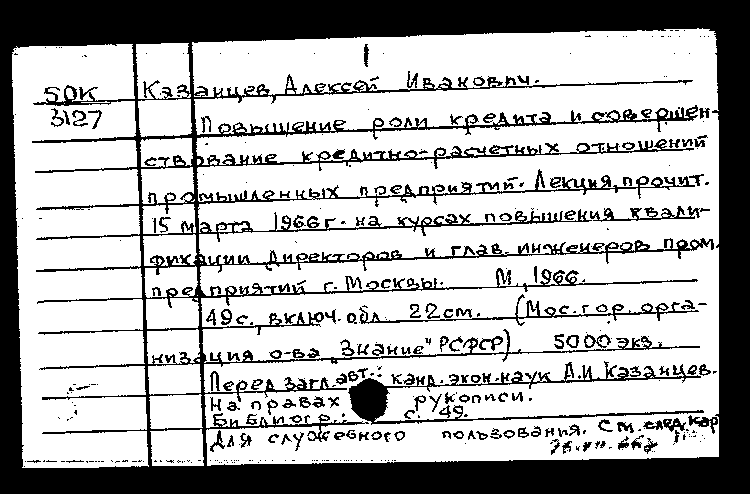 1
50К
3127
Казанцев, Алексей Иванович.
Повышение роли кредита и совершен-
ствование кредитно-расчетных отношений
промышленных предприятий. Лекция, прочит.
15 марта 1966 г. на курсах повышения квали-
фикации директоров и глав. инженеров пром.
предприятий г. Москвы. М., 1966.
49 с., включ. обл. 22 см. (Мос. гор. орга-
низация о-ва „Знание" РСФСР). 5000 экз.
Перед загл. авт.: канд. экон. наук А.И. Казанцев.
На правах рукописи.
Библиогр.: с. 49.
Для служебного пользования. См. след. кар